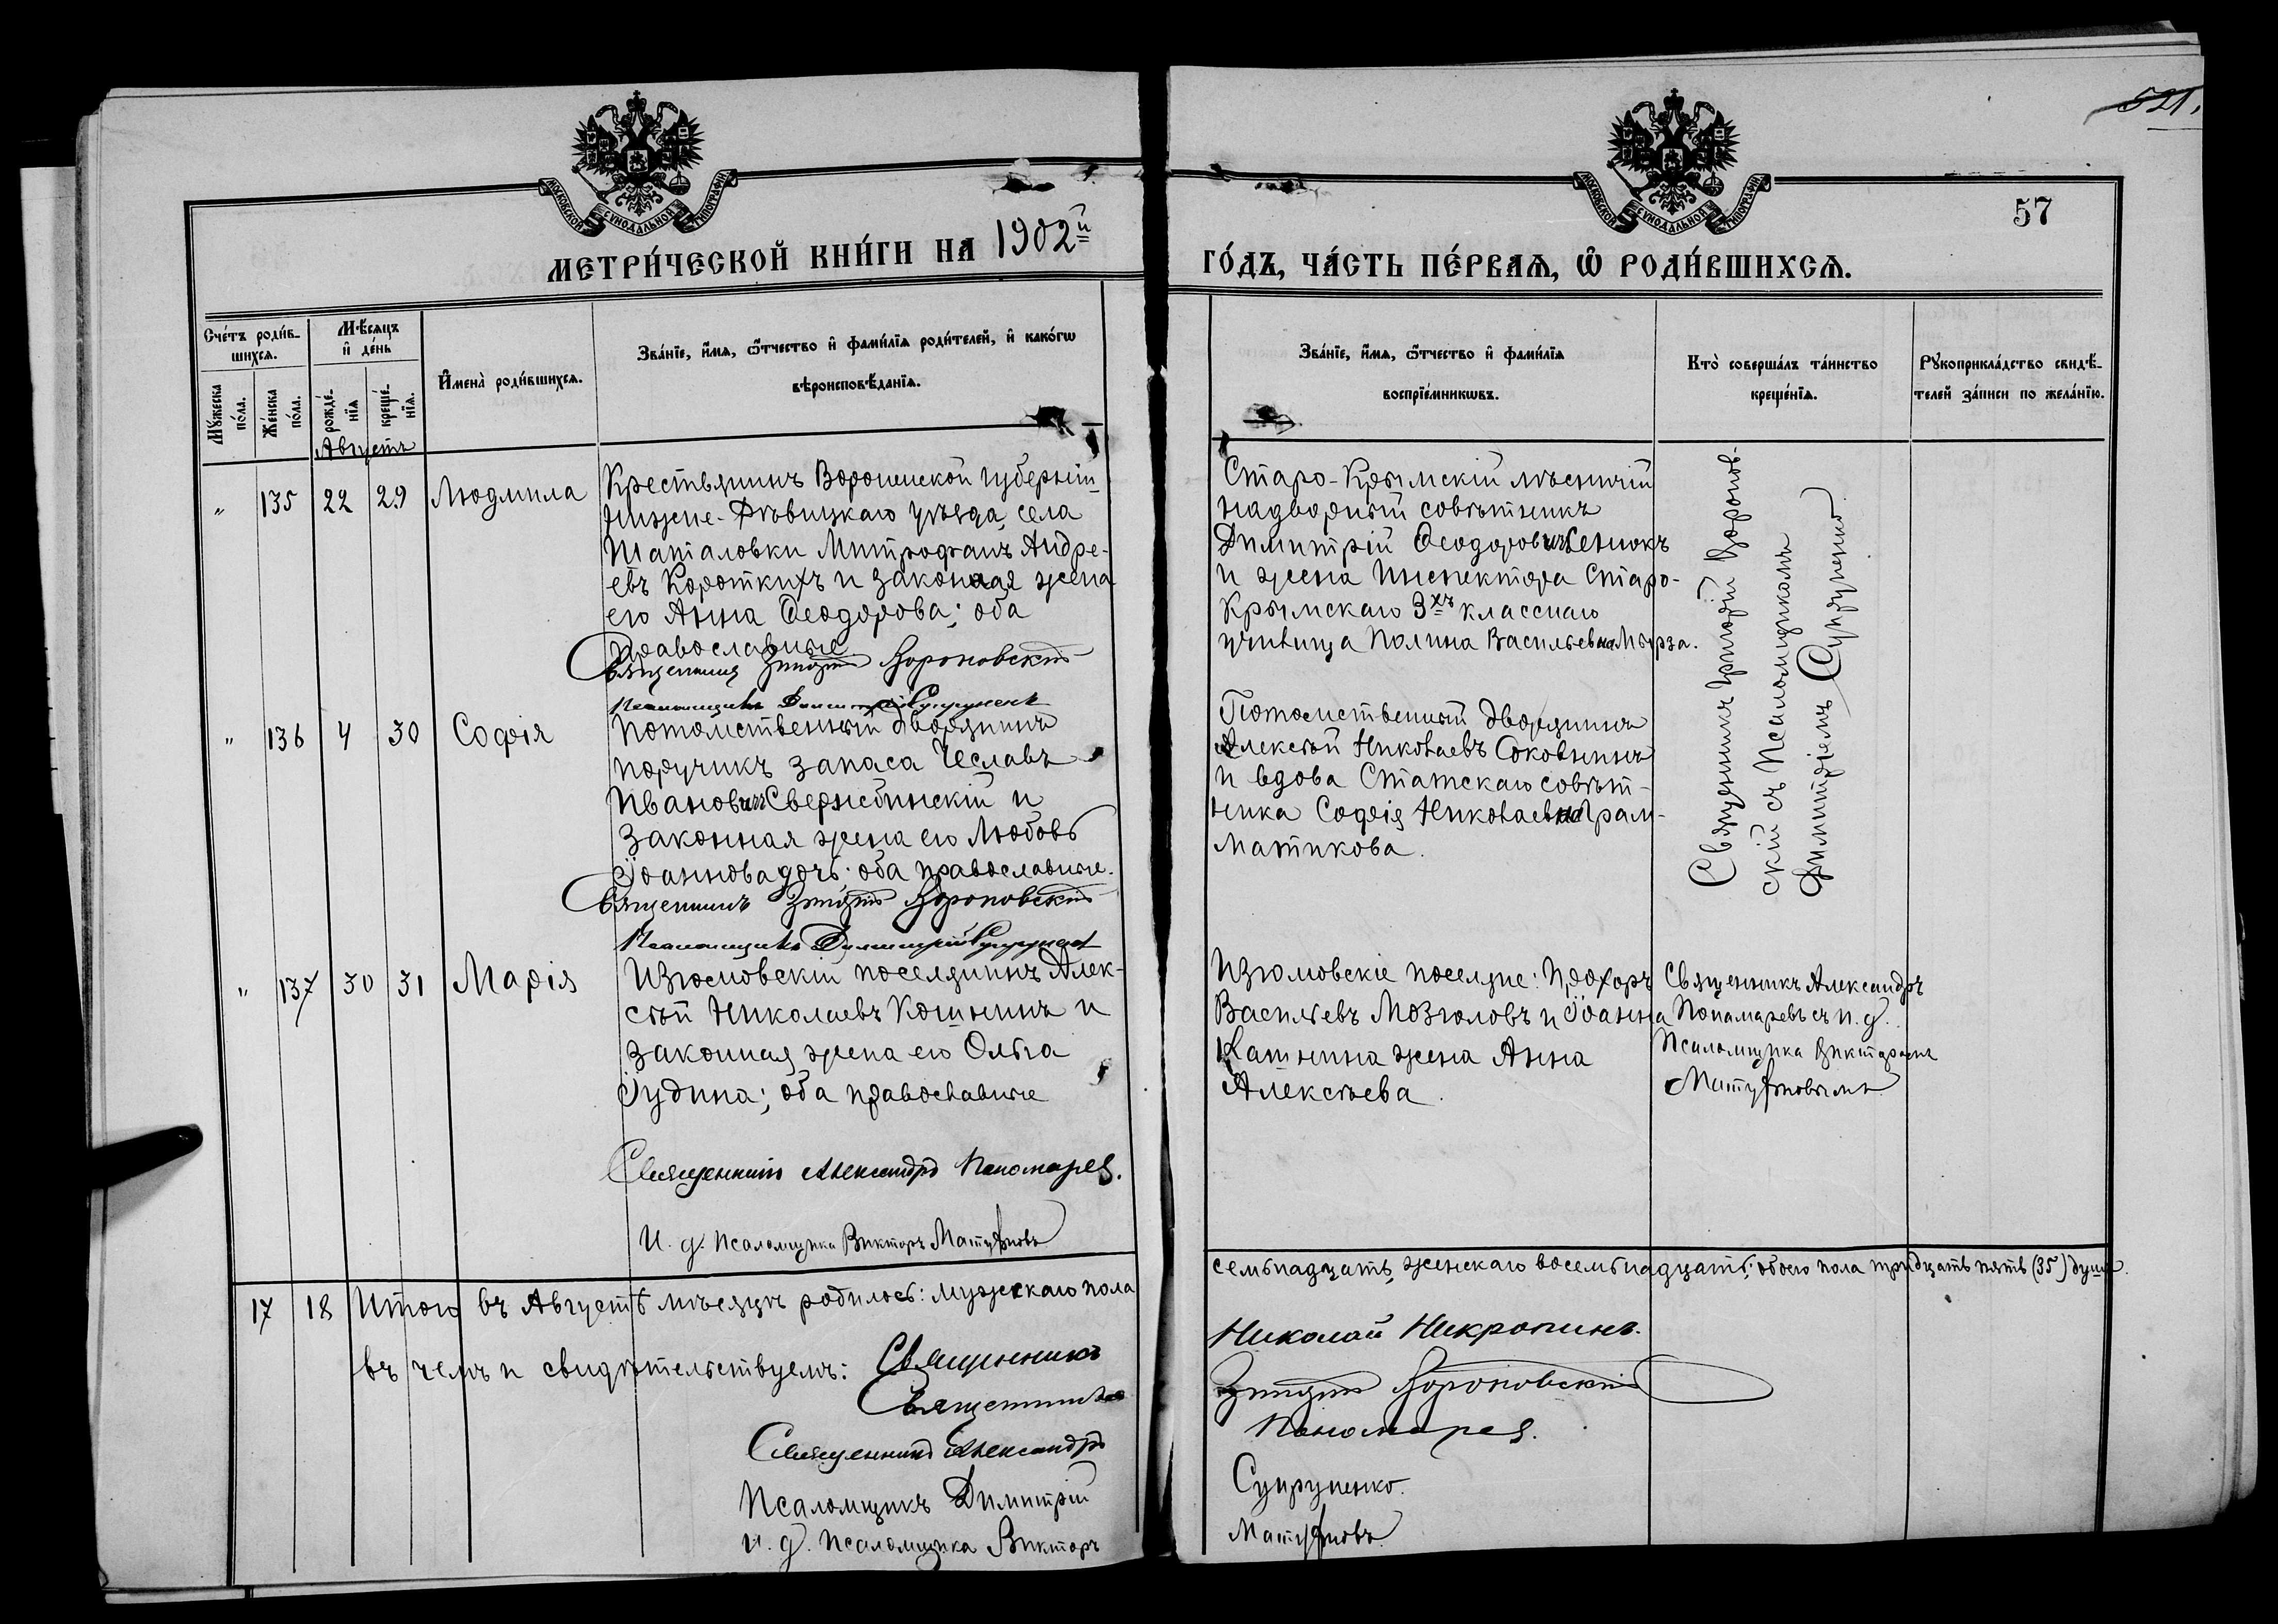 521.
МОСКОВСКОЙ СѴНОДАЛЬНОЙ ТИПОГРАФІИ
МОСКОВСКОЙ СѴНОДАЛЬНОЙ ТИПОГРАФІИ
57
МЕТРИ́ЧЕСКОЙ КНИ́ГИ НА 1902й
ГО́ДЪ, ЧА́СТЬ ПЕ́РВАѦ, Ѡ҆ РОДИ́ВШИХСѦ.
Сче́тъ роди́в-
шихсѧ.
Мꙋжеска по́ла.
Же́нска по́ла.
Мѣ́сѧцъ
и҆ де́нь
рожде́-
нїѧ
креще́-
нїѧ.
И҆мена̀ роди́вшихсѧ.
Зва́нїе, и҆́мѧ, ѻ҆́тчество и҆ фами́лїѧ роди́телей, и҆ како́гѡ
вѣроисповѣ́данїѧ.
Зва́нїе, и҆́мѧ, ѻ҆́тчество и҆ фами́лїѧ
воспрїе́мникѡвъ.
Кто̀ соверша́лъ та́инство
креще́нїѧ.
Рꙋкоприкла́дство свидѣ́-
телей за́писи по жела́нїю.
Августъ
" 135 22 29 Людмила
Крестьянинъ Воронежской губерніи
Нижне-Дѣвицкаго уѣзда, села
Шаталовки Митрофанъ Андре-
евъ Короткихъ и законная жена
его Анна Ѳеодорова; оба
православные.
Священникъ Григорій Вороновскій
Псаломщикъ Димитрій Супруненко
Старо-Крымскій лѣсничій
надворный совѣтникъ
Димитрій Ѳеодоровичъ Сенюкъ
и жена инспектора Старо-
Крымскаго 3хъ класснаго
училища Полина Васильевна Мырза.
Священникъ Григорій Воронов-
скій съ Псаломщикомъ
Димитріемъ Супруненко.
" 136 4 30 Софія
Потомственный дворянинъ
поручикъ запаса Чеславъ
Ивановичъ Свержбинскій и
законная жена его Любовь
Іоаннова дочь; оба православные.
Священникъ Григорій Вороновскій
Псаломщикъ Димитрій Супруненко
Потомственный дворянинъ
Алексѣй Николаевъ Соковнинъ
и вдова Статскаго совѣт-
ника Софія Николаевна Грам-
матикова.
" 137 30 31 Марія
Изюмовскій поселянинъ Алек-
сѣй Николаевъ Кошнинъ и
законная жена его Ольга
Іудина; оба православные
Священникъ Александръ Пономаревъ.
И. д. псаломщика Викторъ
Изюмовскіе поселяне: Прохоръ
Васильевъ Мозголовъ и Іоанна
жена Анна
Алексѣева.
Священникъ Александръ
Понамаревъ съ и. д.
Псаломщика Викторомъ
17 18 Итого въ Августѣ мѣсяцѣ родилось: мужескаго пола
семьнадцать, женскаго восемьнадцать; обоего пола тридцать пять (35) душъ.
въ чемъ и свидѣтельствуемъ: Священникъ
Николай Никропинъ.
Священникъ
Григорій Вороновскій
Священникъ Александръ
Пономаревъ.
Псаломщикъ Димитрій
Супруненко.
и. д. псаломщика Викторъ